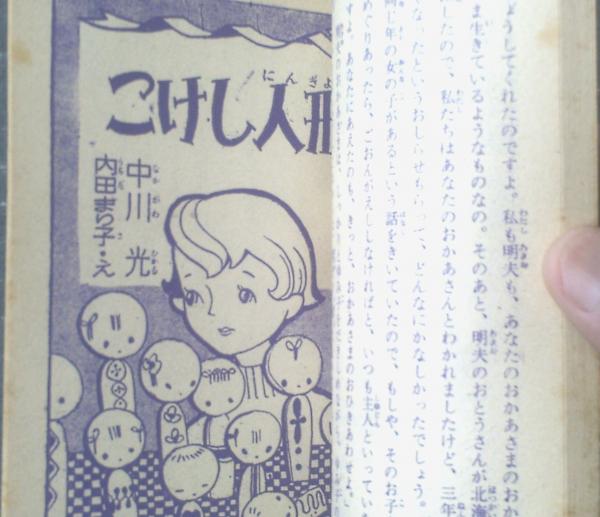 ようしてくれたのですよ。私も明夫も、あなたのおかあさまのおか
ま生きているようなものなの。そのあと、明夫のおとうさんが北海
したので、私たちはあなたのおかあさんとわかれましたけど、三年
くなったというおしらせもらって、どんなにかなしかったでしょう。
同じ年の女の子があるという話をきいていたので、もしや、そのお子
めぐりあったら、ごおんがえししなければと、いつも主人といっていま
すよ。あなたにあえたのも、きっと、おかあさまのおひきあわせ
こけし人形
中川光
内田まり子・え